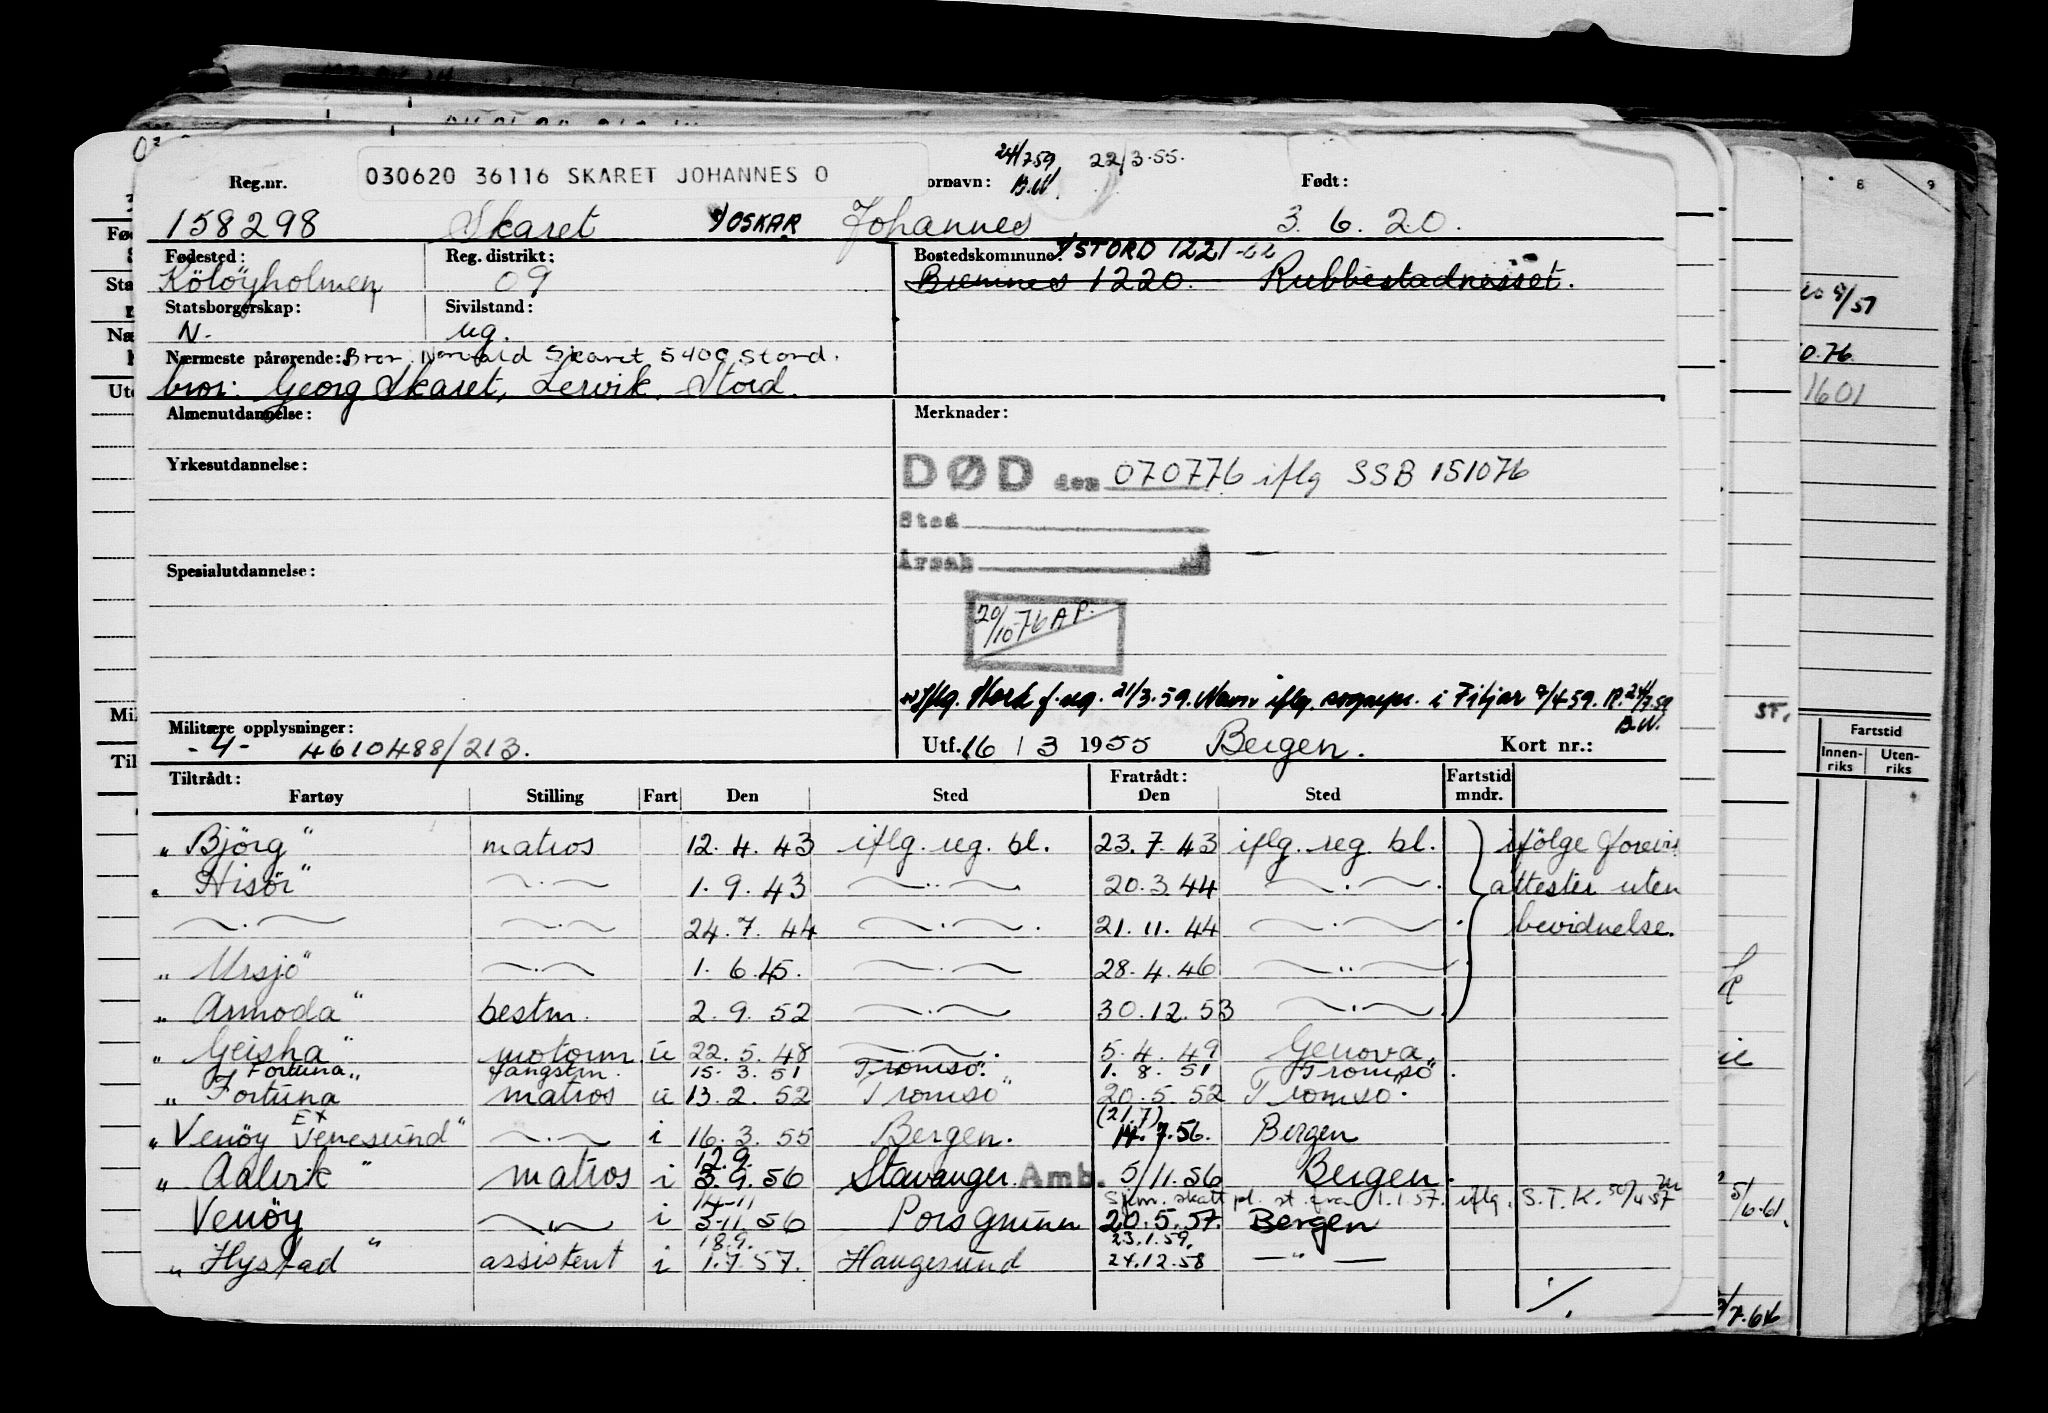 24/7 59 22/3-55.
030620 36116 SKARET JOHANNES O
B.W.
Reg.nr. ornavn: Født:
158298 Skaret OSKAR Johannes 3. 6. 20.
Fødested: Reg. distrikt: Bostedskommune: STORD 1221-
09 Bremnes 1220. Rubbestadnesset.
Statsborgerskap: Sivilstand:
N. ug.
Nærmeste pårørende: Bror Skaret 5400 Stord.
bror: Georg Skaret, Lervik, Stord.
Almenutdannelse: Merknader:
Yrkesutdannelse:
DØD den 070776 iflg SSB 151076
Sted
Årsak
Spesialutdannelse:
20/10-76 A P.
Iflg. Stord f.reg. 21/3.59. Navn iflg. sognepr. i Fitjar 9/4 59. R. 24/7.59
B.W.
Militære opplysninger:
- 4 - 4610488/213. Utf. 16 / 3 1955 Bergen. Kort nr.:
Tiltrådt: Fratrådt: Fartstid
Fartøy Stilling Fart Den Sted Den Sted mndr.
„ Björg " matros 12. 4. 43 iflg. reg. bl. 23. 7. 43 iflg. reg. bl. ifölge forevis
„ Hisör " —..— 1. 9. 43 —..— 20. 3. 44 —.—. attester uten
—.— —.— 24. 7. 44 —.—. 21. 11. 44 —.—. bevidnelse.
„ Ursjö " —.— 1. 6. 45. —.— 28. 4. 46 —..—
„ Armoda " bestm. 2. 9. 52 —.— 30. 12. 53 —.—
„ Geisha " motorm. u 22. 5. 48 —..—. 5. 4. 49 Genova
„ Fortuna „ fangstm. 15. 3. 51 Tromsö. 1. 8. 51 Tromsö.
„ Fortuna matros u 13. 2. 52 Tromsö " 20. 5. 52 Tromsö.
(21.7)
„ Venöy EX Venesund " —.— i 16. 3. 55 Bergen. 14. 7. 56. Bergen
12.9.
„ Aalvik " matros i 3. 9. 56 Stavanger. Amb. 5/11. 56 Bergen.
14-11 Sjøm. skatt pl. st. fra 1.1.57. iflg. S.T.K. 30/4 57
Venöy —..— i 3-11. 56 Porsgrunn 20. 5. 57. Bergen
18.9. 23.1.59.
„ Hystad " assistent i 1. 7. 57. Haugesund 24.12.58 — " —
./.
8 9
5/57
0.76.
1601
ST.
Fartstid
Innen-riks Uten-riks
5/6-61.
7.64